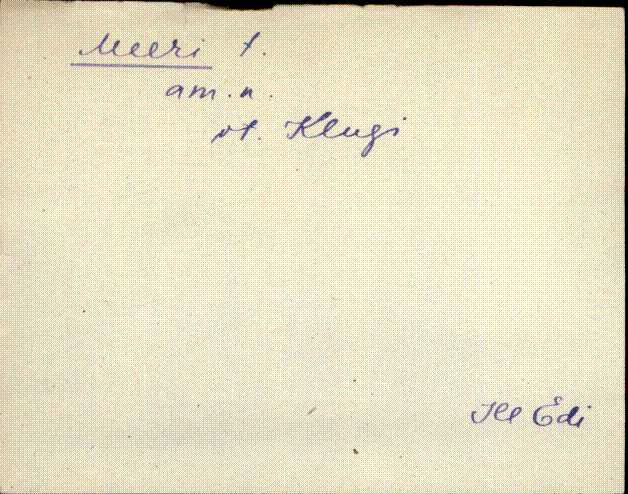 Meeri t.
am. n.
vt. Klugi
Edi